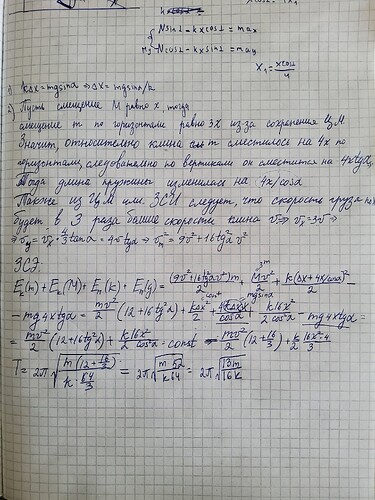 x cosα
N sinα - kx cosα = max
mg N cosα - kx sinα = may
x₁ = x cosα / 4
1) kΔx = mg sinα ⇒ Δx = mg sinα/k
2) Пусть смещение M равно x тогда
смещение m по горизонтали равно 3x из-за сохранения Ц.М.
Значит, относительно клина m сместилось на 4x по
горизонтали, следовательно по вертикали он сместится на 4x tgα,
Тогда длина пружины изменилась на 4x/cosα
Также из ЦМ или ЗСИ следует, что скорость груза по x
будет в 3 раза больше скорости клина v ⇒ vₓ = 3v ⇒
⇒ v_y = vₓ · 4/3 tanα = 4v tgα ⇒ v_m² = 9v² + 16 tg²α v²
ЗСЭ:
E_k(m) + E_k(M) + E_n(k) + E_n(g) = (9v² + 16tg²α v²)m/2 + Mv²/2 + k(Δx + 4x/cosα)²/2 -
- mg 4x tgα = mv²/2 (12 + 16tg²α) + kΔx²/2 + 4kΔx x/cosα + k16x²/2cos²α - mg4x tgα =
= mv²/2 (12 + 16tg²α) + k/2 16x²/cos²α = const = mv²/2 (12 + 16/3) + k/2 16x²·4/3
T = 2π √(m(12 + 16/3) / k · 64/3) = 2π √(m 52 / k 64) = 2π √(13m / 16k)